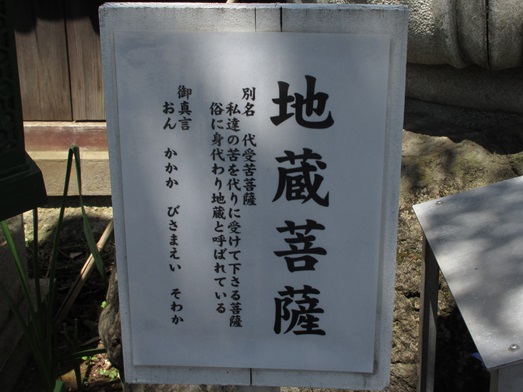 地蔵菩薩
別名　代受苦菩薩
私達の苦を代りに受けて下さる菩薩
俗に身代わり地蔵と呼ばれている
御真言
おん　かかか　びさまえい　そわか